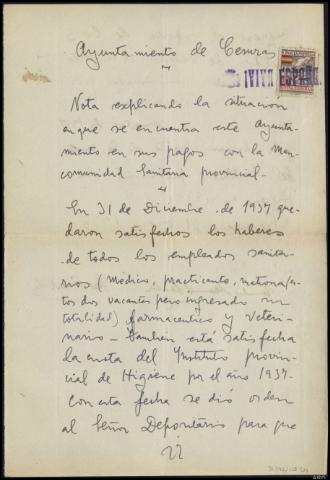 Ayuntamiento de Cesuras
¡VIVA ESPAÑA!
Nota explicando la situación
en que se encuentra este Ayunta-
miento en sus pagos con la Man-
comunidad Sanitaria provincial.-
En 31 de Diciembre de 1937 que-
daron satisfechos los haberes
de todos los empleados sanita-
rios (médico, practicante, matrona (es-
tos dos vacantes pero ingresado su
totalidad) farmaceutico y Veteri-
nario - Tambien está satisfecha
la cuota del Instituto provin-
cial de Higiene por el año 1937.
Con esta fecha se dió orden
al Señor Depositario para que